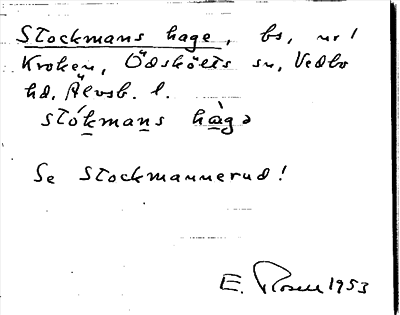 Stockmans hage, bs, nr 1
Kroken, Ödskölts sn, Vedbo
hd, Älvsb. l.
stókmans hàgə
Se Stockmannerud!
E. Rosell 1953